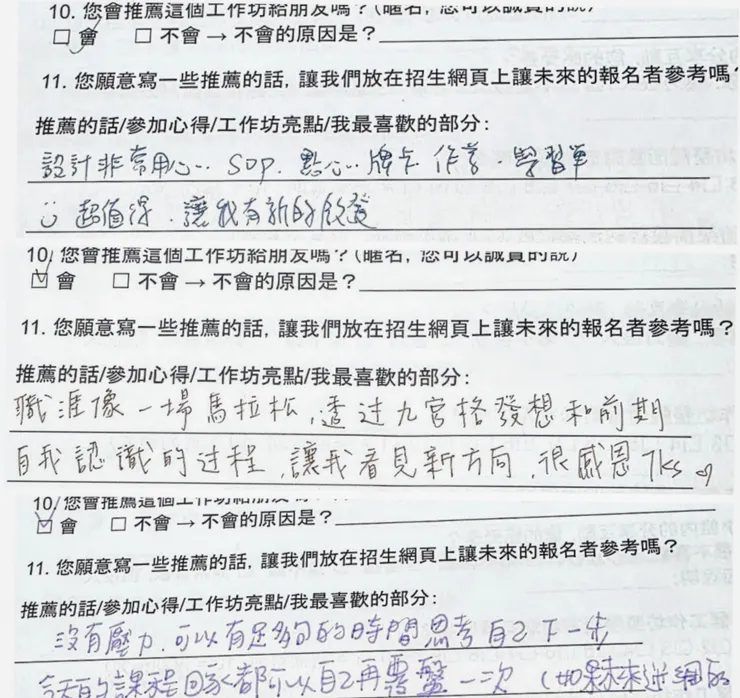 10. 您會推薦這個工作坊給朋友嗎？(匿名，您可以誠實的說)
☐ 會 ☐ 不會 → 不會的原因是？
11. 您願意寫一些推薦的話，讓我們放在招生網頁上讓未來的報名者參考嗎？
推薦的話/參加心得/工作坊亮點/我最喜歡的部分：
設計非常用心.. SOP. 點心.. 牌卡 作業 學習單
超值得. 讓我有新的啟發
10. 您會推薦這個工作坊給朋友嗎？(匿名，您可以誠實的說)
☑ 會 ☐ 不會 → 不會的原因是？
11. 您願意寫一些推薦的話，讓我們放在招生網頁上讓未來的報名者參考嗎？
推薦的話/參加心得/工作坊亮點/我最喜歡的部分：
職涯像一場馬拉松，透过九宮格發想和前期
自我認識的过程，讓我看見新方向，很感恩 Tks
10. 您會推薦這個工作坊給朋友嗎？
☑ 會 ☐ 不會 → 不會的原因是？
11. 您願意寫一些推薦的話，讓我們放在招生網頁上讓未來的報名者參考嗎？
推薦的話/參加心得/工作坊亮點/我最喜歡的部分：
沒有壓力，可以有足夠的時間思考自己下一步
今天的課程回家都可以自己再覆盤一次 (如果未來